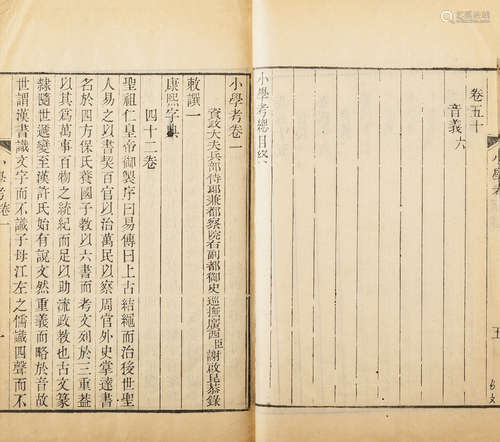 卷五十
音義六
小學考總目終
小學考卷一
資政大夫兵部侍郎兼都察院右副都御史巡撫廣西臣謝啟昆恭錄
敕撰一
康熙字典
四十二卷
聖祖仁皇帝御製序曰易傳曰上古結繩而治後世聖
人易之以書契百官以治萬民以察周官外史掌達書
名於四方保氏養國子教以六書而考文列於三重蓋
以其爲萬事百物之統紀而足以助流政教也古文篆
隸隨世遞變至漢許氏始有說文然重義而略於音故
世謂漢書識文字而不識子母江左之儒識四聲而不
小學考卷一